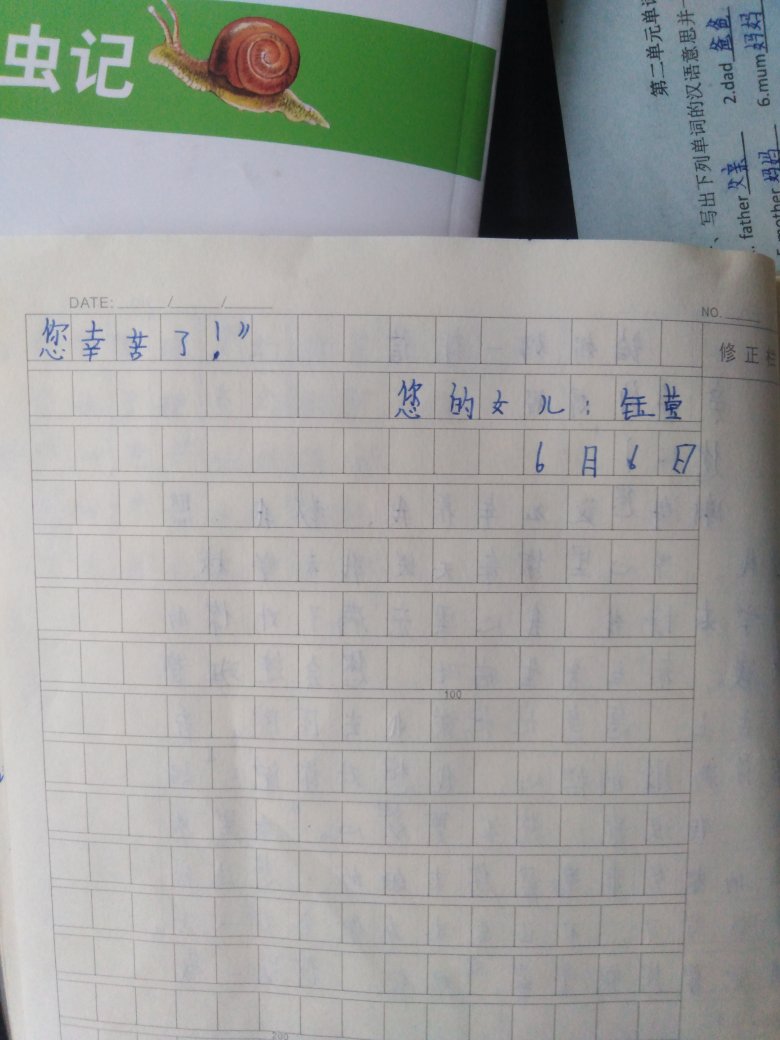 虫记
第二单元单
、写出下列单词的汉语意思并
father 父亲 2.dad 爸爸
mother 妈妈 6.mum 妈妈
DATE: / /
NO.
修正
您幸苦了！”
您的女儿：钰莹
6月6日
100
200